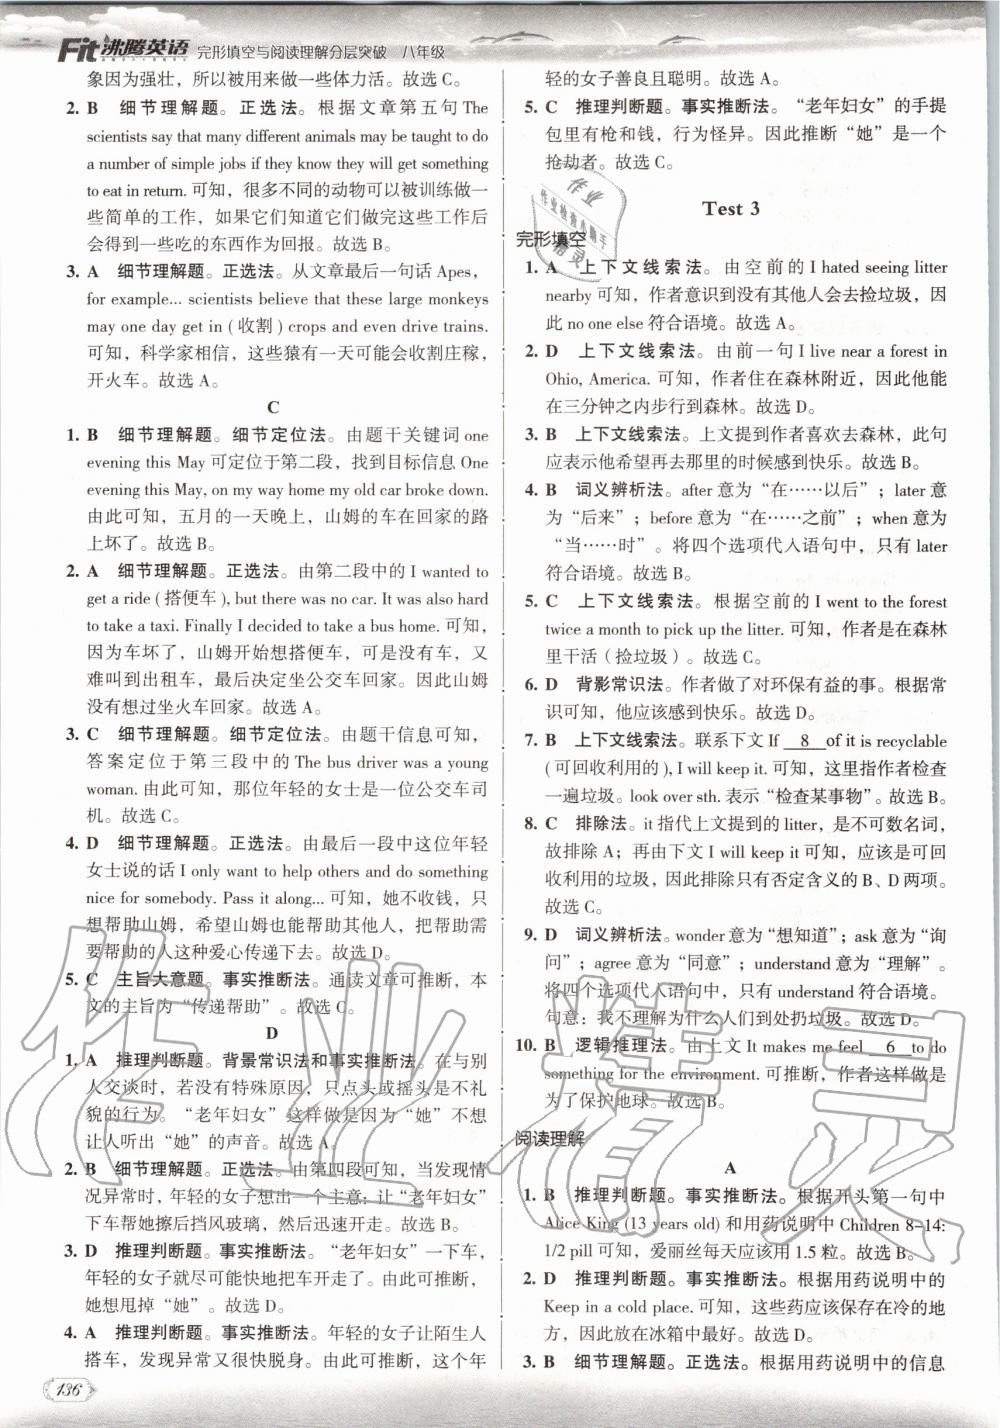 Fit沸腾英语 完形填空与阅读理解分层突破 八年级
象因为强壮，所以能做一些体力活。故选 C。
2. B 细节理解题。正选法。根据文章第五句 The
scientists say that many different animals may be taught to do
a number of simple jobs if they know they will get something
to eat in return. 可知，很多不同的动物可以被训练做一
些简单的工作，如果它们知道它们做完这些工作后
会得到一些吃的东西作为回报。故选 B。
3. A 细节理解题。正选法。从文章最后一句话 Apes,
for example... scientists believe that these large monkeys
may one day get in ( 收割 ) crops and even drive trains.
可知，科学家相信，这些猿有一天可能会收割庄稼，
开火车。故选 A。
C
1. B 细节理解题。细节定位法。由题干关键词 one
evening this May 可定位于第二段，找到目标信息 One
evening this May, on my way home my old car broke down.
由此可知，五月的一天晚上，山姆的车在回家的路
上坏了。故选 B。
2. A 细节理解题。正选法。由第二段中的 I wanted to
get a ride ( 搭便车 ), but there was no car. It was also hard
to take a taxi. Finally I decided to take a bus home. 可知，
因为车坏了，山姆开始想搭便车，可是没有车，又
难叫到出租车，最后决定坐公交车回家。因此山姆
没有想过坐火车回家。故选 A。
3. C 细节理解题。细节定位法。由题干信息可知，
答案定位于第三段中的 The bus driver was a young
woman. 由此可知，那位年轻的女士是一位公交车司
机。故选 C。
4. D 细节理解题。正选法。由最后一段中这位年轻
女士说的话 I only want to help others and do something
nice for somebody. Pass it along... 可知，她不收钱，只
想帮助山姆，希望山姆能帮助其他人，把帮助需
要帮助的人这种爱心传递下去。故选 D。
5. C 主旨大意题。事实推断法。通读文章可推断，本
文的主旨为“传递帮助”。故选 C。
D
1. A 推理判断题。背景常识法和事实推断法。在与别
人交谈时，若没有特殊原因，只点头或摇头是不礼
貌的行为。“老年妇女”这样做是因为“她”不想
让人听出“她”的声音。故选 A。
2. B 细节理解题。正选法。由第四段可知，当发现情
况异常时，年轻的女子想出一个主意：让“老年妇女”
下车帮她擦后挡风玻璃，然后迅速开走。故选 B。
3. D 推理判断题。事实推断法。“老年妇女”一下车，
年轻的女子就尽可能快地把车开走了。由此可推断，
她想甩掉“她”。故选 D。
4. A 推理判断题。事实推断法。年轻的女子让陌生人
搭车，发现异常又很快脱身。由此可推断，这个年
136
轻的女子善良且聪明。故选 A。
5. C 推理判断题。事实推断法。“老年妇女”的手提
包里有枪和钱，行为怪异。因此推断“她”是一个
抢劫者。故选 C。
Test 3
完形填空
1. A 上下文线索法。由空前的 I hated seeing litter
nearby 可知，作者意识到没有其他人会去捡垃圾，因
此 no one else 符合语境。故选 A。
2. D 上下文线索法。由前一句 I live near a forest in
Ohio, America. 可知，作者住在森林附近，因此他能
在三分钟之内步行到森林。故选 D。
3. B 上下文线索法。上文提到作者喜欢去森林，此句
应表示他希望再去那里的时候感到快乐。故选 B。
4. B 词义辨析法。after 意为“在……以后”；later 意
为“后来”；before 意为“在……之前”；when 意为
“当……时”。将四个选项代入语句中，只有 later
符合语境。故选 B。
5. C 上下文线索法。根据空前的 I went to the forest
twice a month to pick up the litter. 可知，作者是在森林
里干活（捡垃圾）。故选 C。
6. D 背影常识法。作者做了对环保有益的事。根据常
识可知，他应该感到快乐。故选 D。
7. B 上下文线索法。联系下文 If 8 of it is recyclable
( 可回收利用的 ), I will keep it. 可知，这里指作者检查
一遍垃圾。look over sth. 表示“检查某事物”。故选 B。
8. C 排除法。it 指代上文提到的 litter，是不可数名词，
故排除 A；再由下文 I will keep it 可知，应该是可回
收利用的垃圾，因此排除只有否定含义的 B、D 两项。
故选 C。
9. D 词义辨析法。wonder 意为“想知道”；ask 意为“询
问”；agree 意为“同意”；understand 意为“理解”。
将四个选项代入语句中，只有 understand 符合语境。
句意：我不理解为什么人们到处扔垃圾。故选 D。
10. B 逻辑推理法。由上文 It makes me feel 6 to do
something for the environment. 可推断，作者这样做是
为了保护地球。故选 B。
阅读理解
A
1. B 推理判断题。事实推断法。根据开头第一句中
Alice King (13 years old) 和用药说明中 Children 8-14:
1/2 pill 可知，爱丽丝每天应该用 1.5 粒。故选 B。
2. D 推理判断题。事实推断法。根据用药说明中的
Keep in a cold place. 可知，这些药应该保存在冷的地
方，因此放在冰箱中最好。故选 D。
3. B 细节理解题。正选法。根据用药说明中的信息
作业
作业检查小助手
精灵
作业精灵